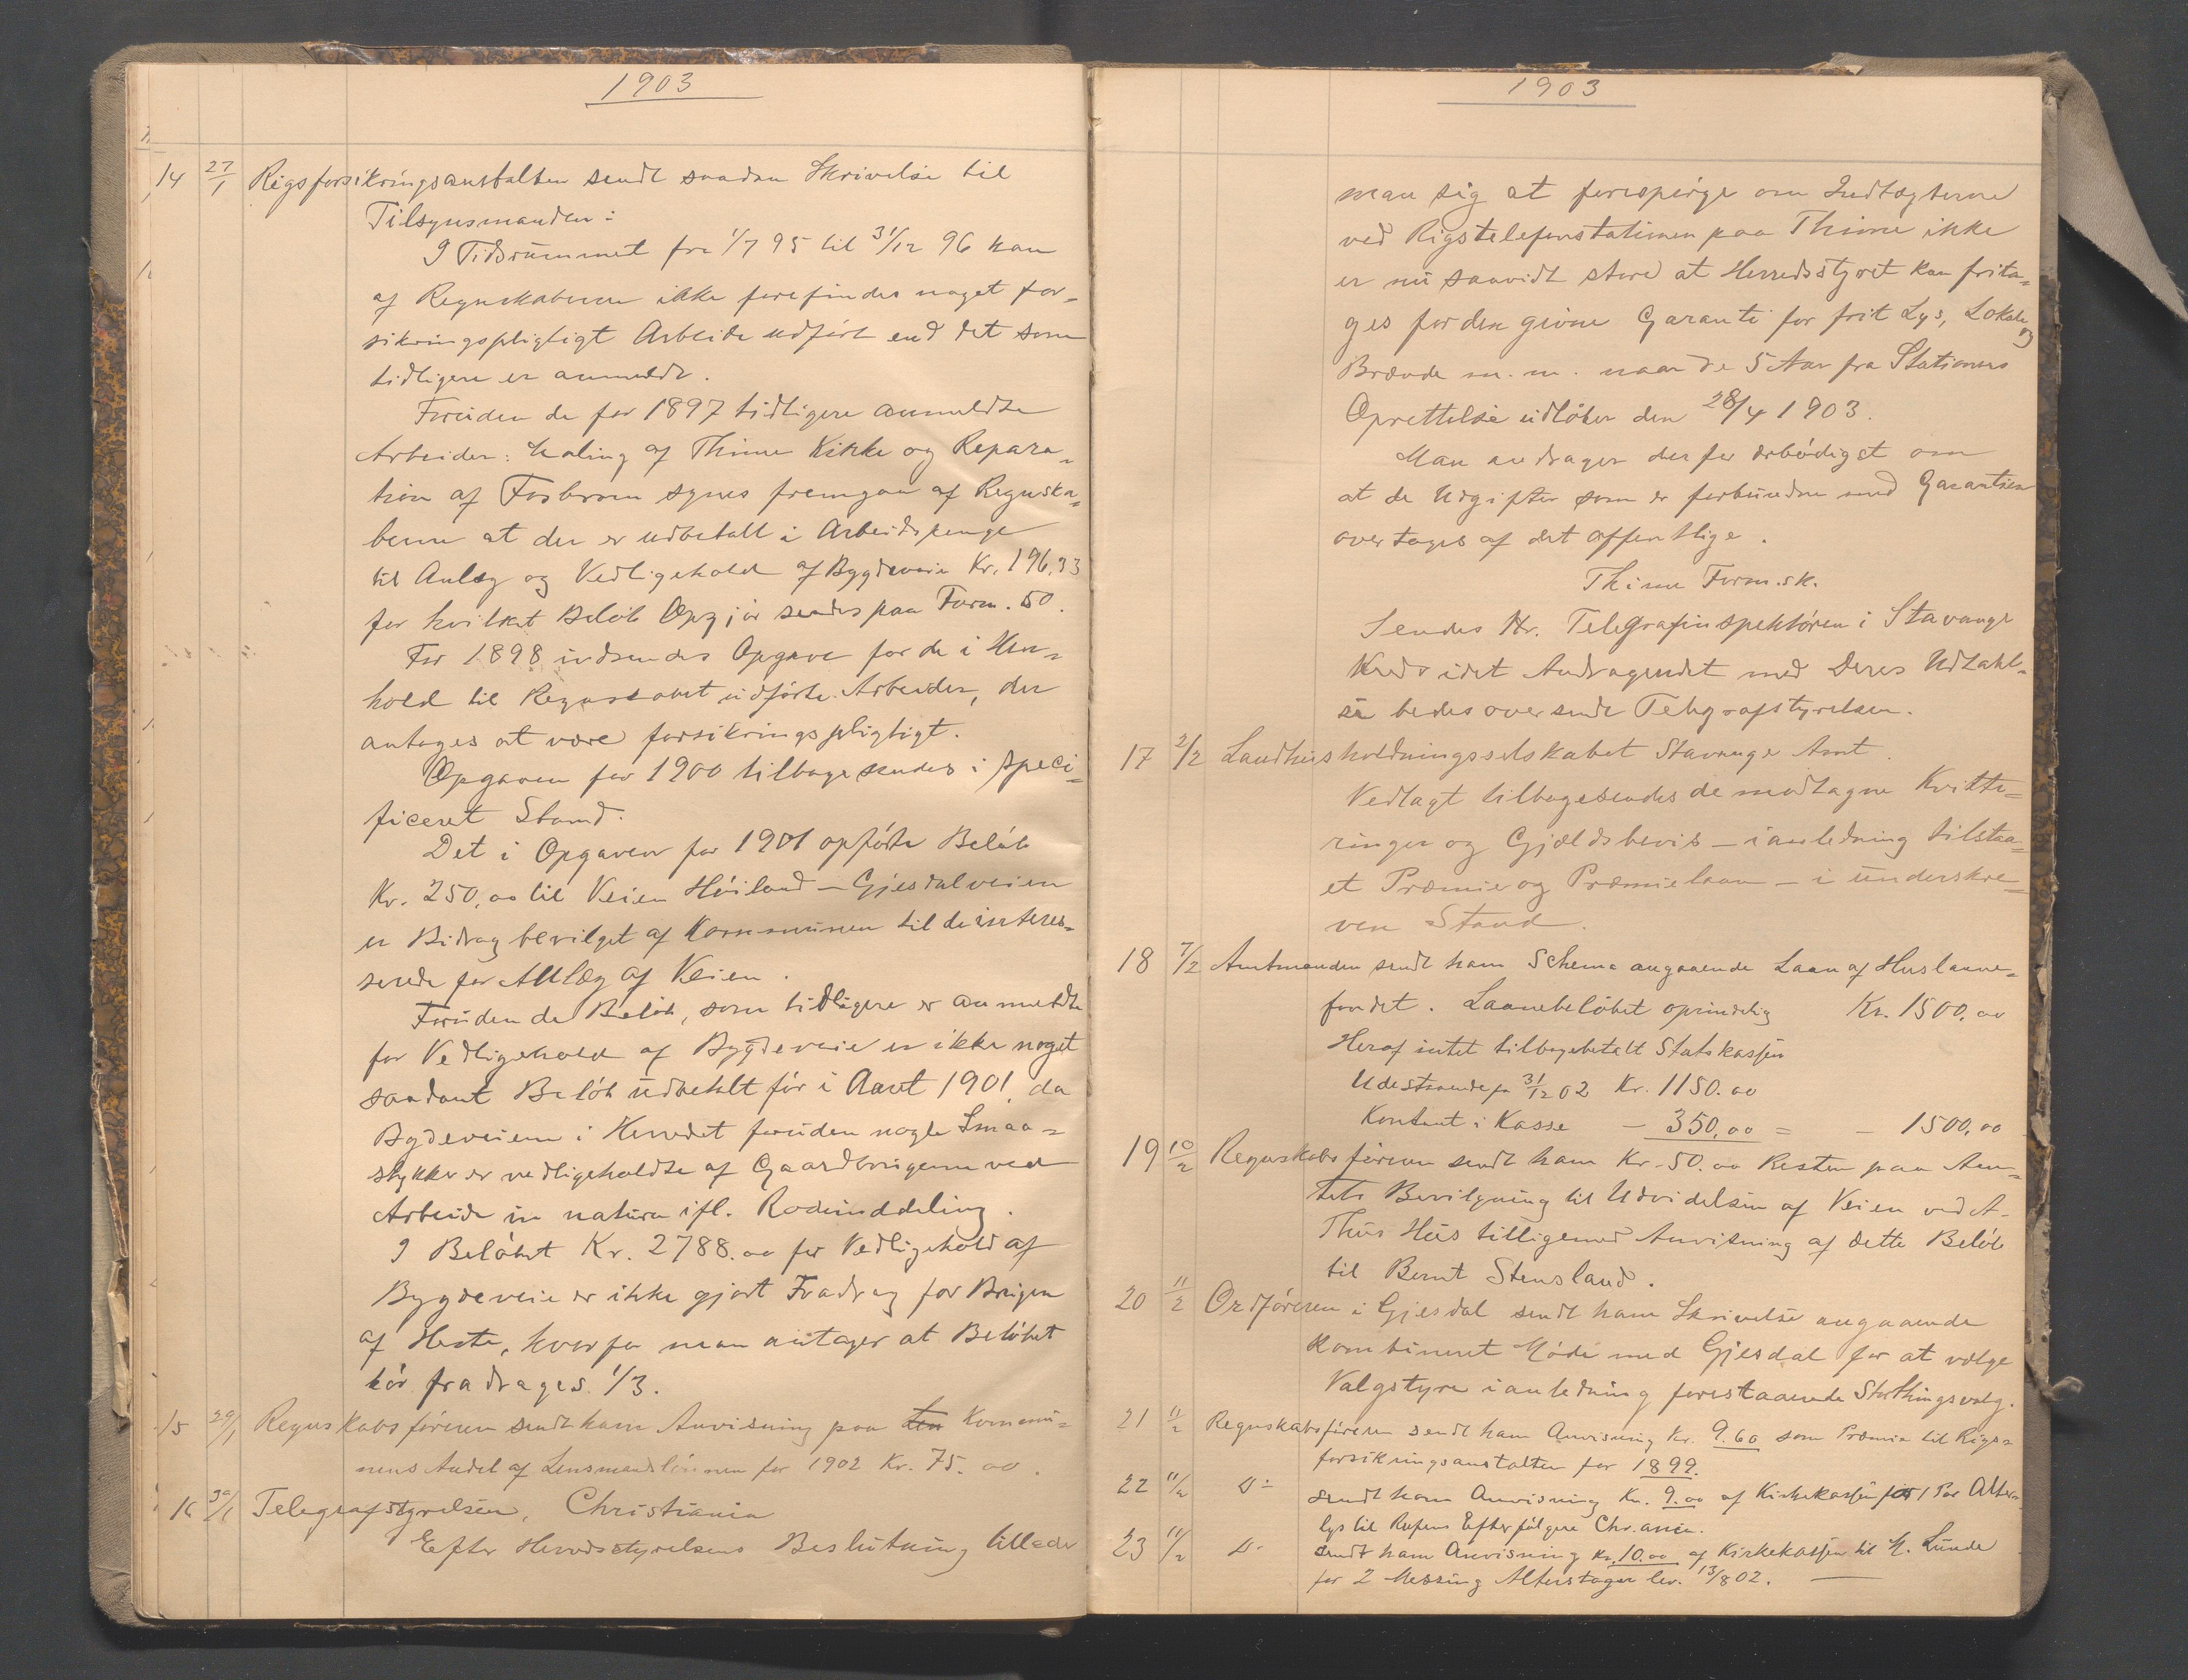 1903
14 27/1 Rigsforsikringsanstalten sendt saadan Skrivelse til
Tilsynsmanden:
I Tidsrummet fra 1/7 95 til 31/12 96 kan
af Regnskaberne ikke forefindes noget for-
sikringspligtigt Arbeide udført end det som
tidligere er anmeldt.
Foruden de for 1897 tidligere anmeldte
Arbeider: Maling af Thime Kirke og Repara-
tion af Fosbroen synes fremgaa af Regnska-
berne at der er udbetalt i Arbeidspenge
til Anlæg og Vedligehold af Bygdeveie Kr. 196,33
for hvilket Beløb Opgjør sendes paa Form. 50.
For 1898 indsendes Opgave for de i Hen-
hold til Regnskabet udførte Arbeider, der
antages at være forsikringspligtigt.
Opgaven for 1900 tilbagesendes i speci-
ficeret Stand.
Det i Opgaven for 1901 opførte Beløb
Kr. 250,00 til Veien Høiland – Gjesdalveien
er Bidrag bevilget af Kommunen til de interes-
serede for Anlæg af Veien.
Foruden de Beløb, som tidligere er anmeldte
for Vedligehold af Bygdeveie er ikke noget
saadant Beløb udbetalt før i Aaret 1901, da
Bygdeveiene i Herredet foruden nogle Smaa-
stykker er vedligeholdte af Gaardbrugerne ved
Arbeide in natura ifl. Rodeinddeling.
I Beløbet Kr. 2788.00 for Vedligehold af
Bygdeveie er ikke gjort Fradrag for Brugen
af Heste, hvorfor man antager at Beløbet
bør fradrages 1/3.
15 29/1 Regnskabsføreren sendt ham Anvisning paa Kommu-
nens Andel af Lensmandslønnen for 1902 Kr. 75.00.
16 30/1 Telegrafstyrelsen, Christiania
Efter Herredsstyrelsens Beslutning tillader
1903
man sig at forespørge om Indtægterne
ved Rigstelefonstationen paa Thime ikke
er nu saavidt store at Herredsstyret kan frita-
ges for den givne Garanti for frit Lys, Lokale og
Brænde m.m. naar de 5 Aar fra Stationens
Oprettelse udløber den 28/4 1903.
Man andrager derfor ærbødigst om
at de Udgifter som er forbundne med Garantien
overtages af det offentlige.
Thime Form.sk.
Sendes Hr. Telegrafinspektøren i Stavanger
Kreds idet Andragendet med Deres Udtalel-
se bedes oversendt Telegrafstyrelsen.
17 2/2 Landhusholdningsselskabet Stavanger Amt.
Vedlagt tilbagesendes de modtagne Kvitte-
ringer og Gjældsbevis – i anledning tilstaa-
et Præmie og Præmielaan – i underskre-
ven Stand.
18 7/2 Amtmanden sendt ham Schema angaaende Laan af Huslaane-
fondet. Laanebeløbet oprindelig Kr. 1500,00
Heraf intet tilbagebetalt Statskassen
Udestaaende pr 31/12 02 Kr. 1150.00
Kontant i Kasse – 350,00 = – 1500,00
19 10/2 Regnskabsføreren sendt ham Kr. 50.00 Resten paa Am-
tets Bevilgning til Udvidelsen af Veien ved A.
Thus Hus tilligemed Anvisning af dette Beløb
til Bernt Stensland.
20 11/2 Ordføreren i Gjesdal sendt ham Skrivelse angaaende
kombineret Møde med Gjesdal for at vælge
Valgstyre i anledning forestaaende Storthingsvalg.
21 11/2 Regnskabsføreren sendt ham Anvisning Kr. 9.60 som Præmie til Rigs-
forsikringsanstalten for 1899.
22 11/2 Do sendt ham Anvisning Kr. 9.00 af Kirkekassen for 1 Par Alter-
lys til Efterfølgere Chr.ania.
23 11/2 Do sendt ham Anvisning Kr. 10.00 af Kirkekassen til M. Lunde
for 2 Messing Alterstager lev. 13/8 02.